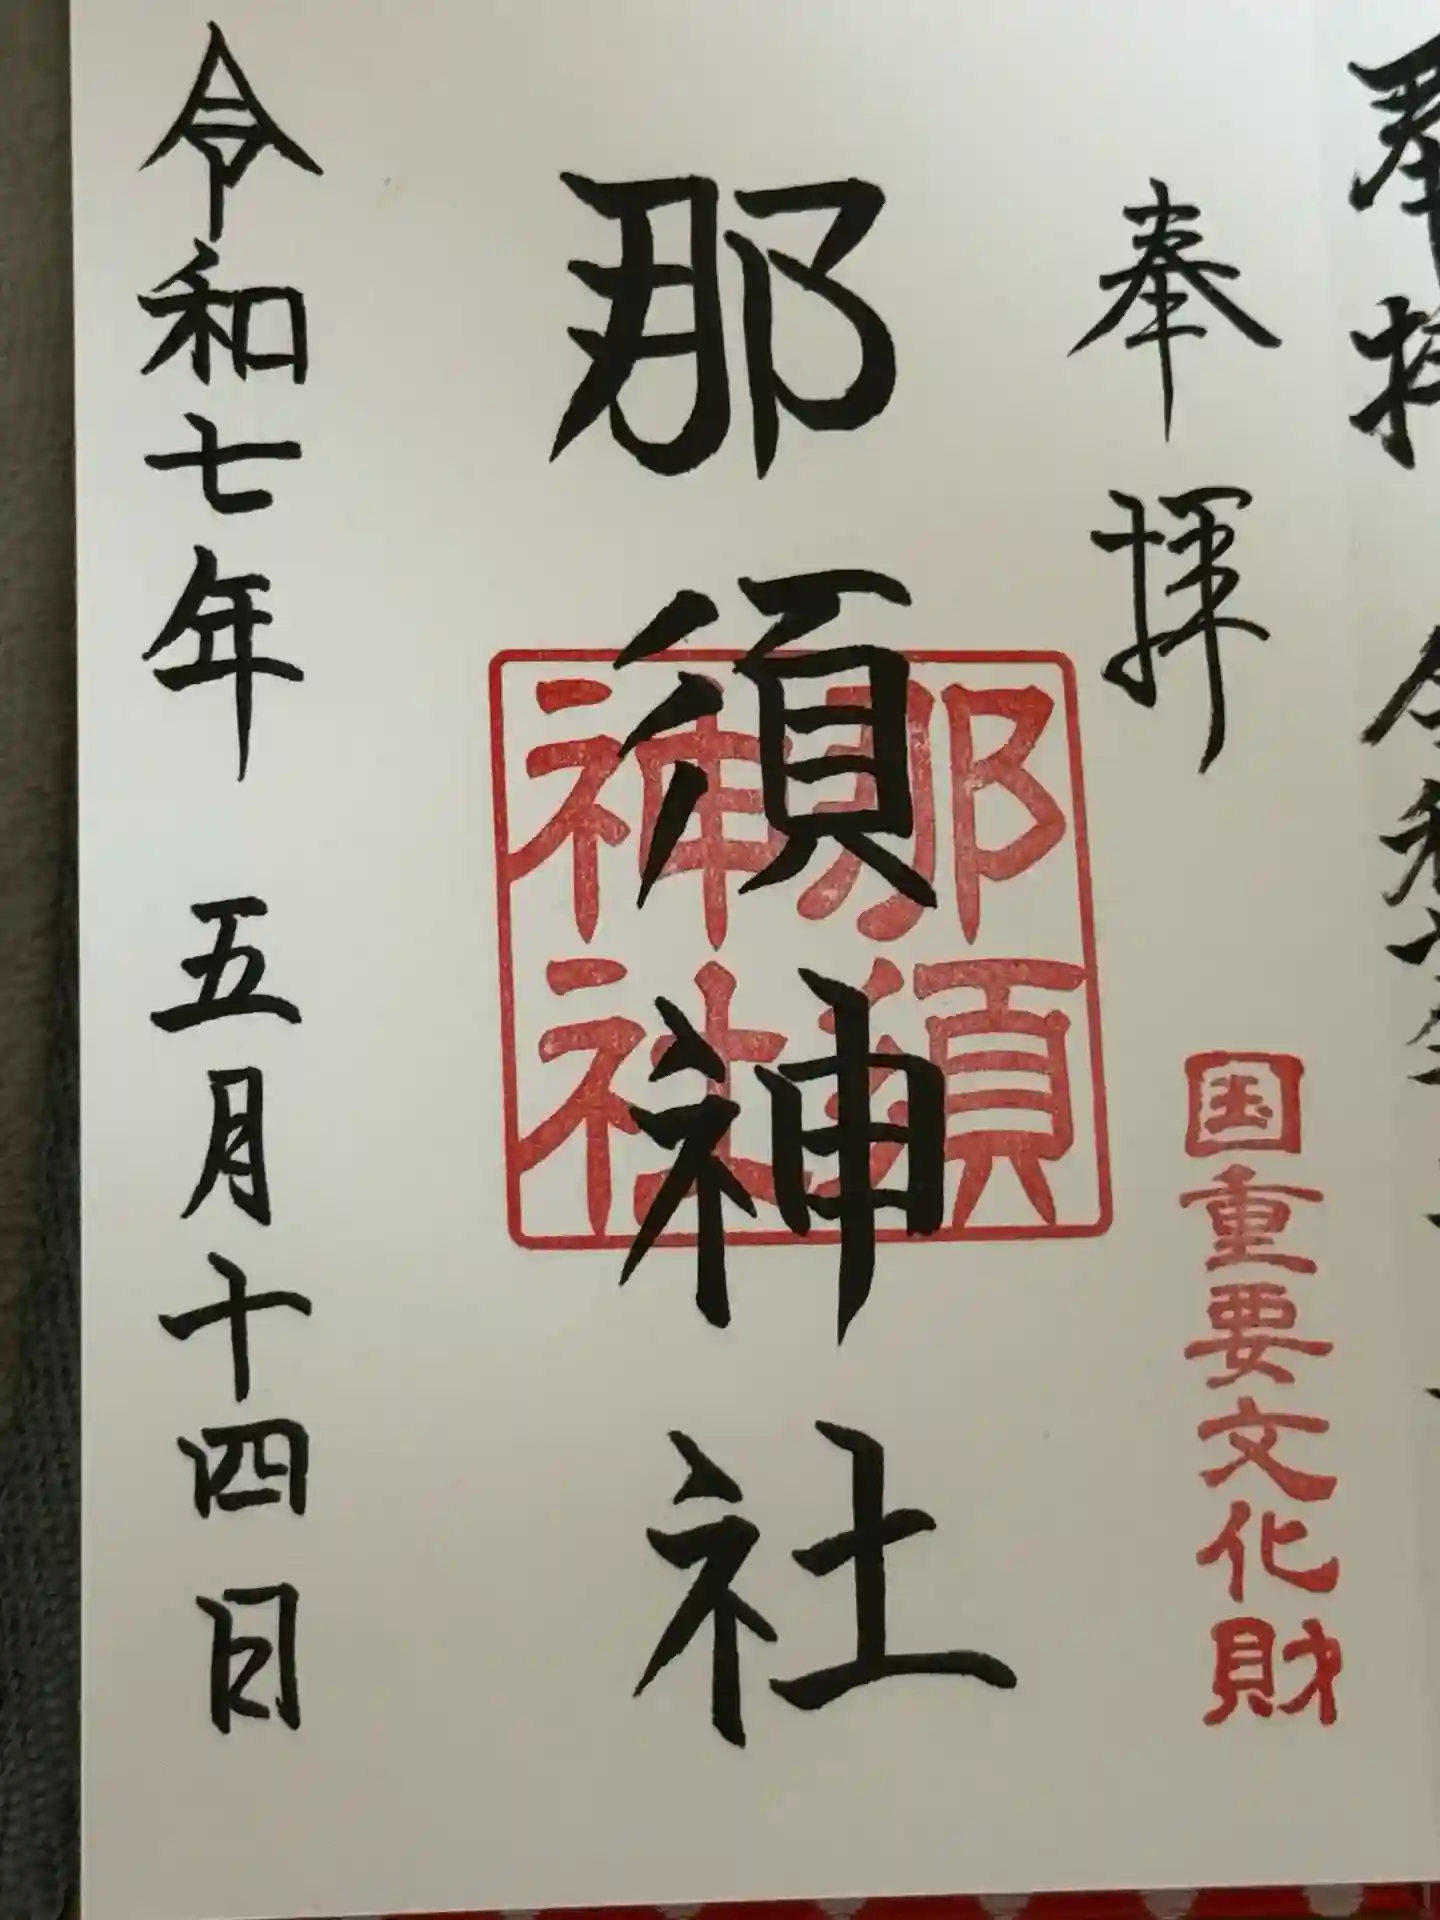 奉拝
国重要文化財
那須神社
那須
神社
令和七年 五月十四日